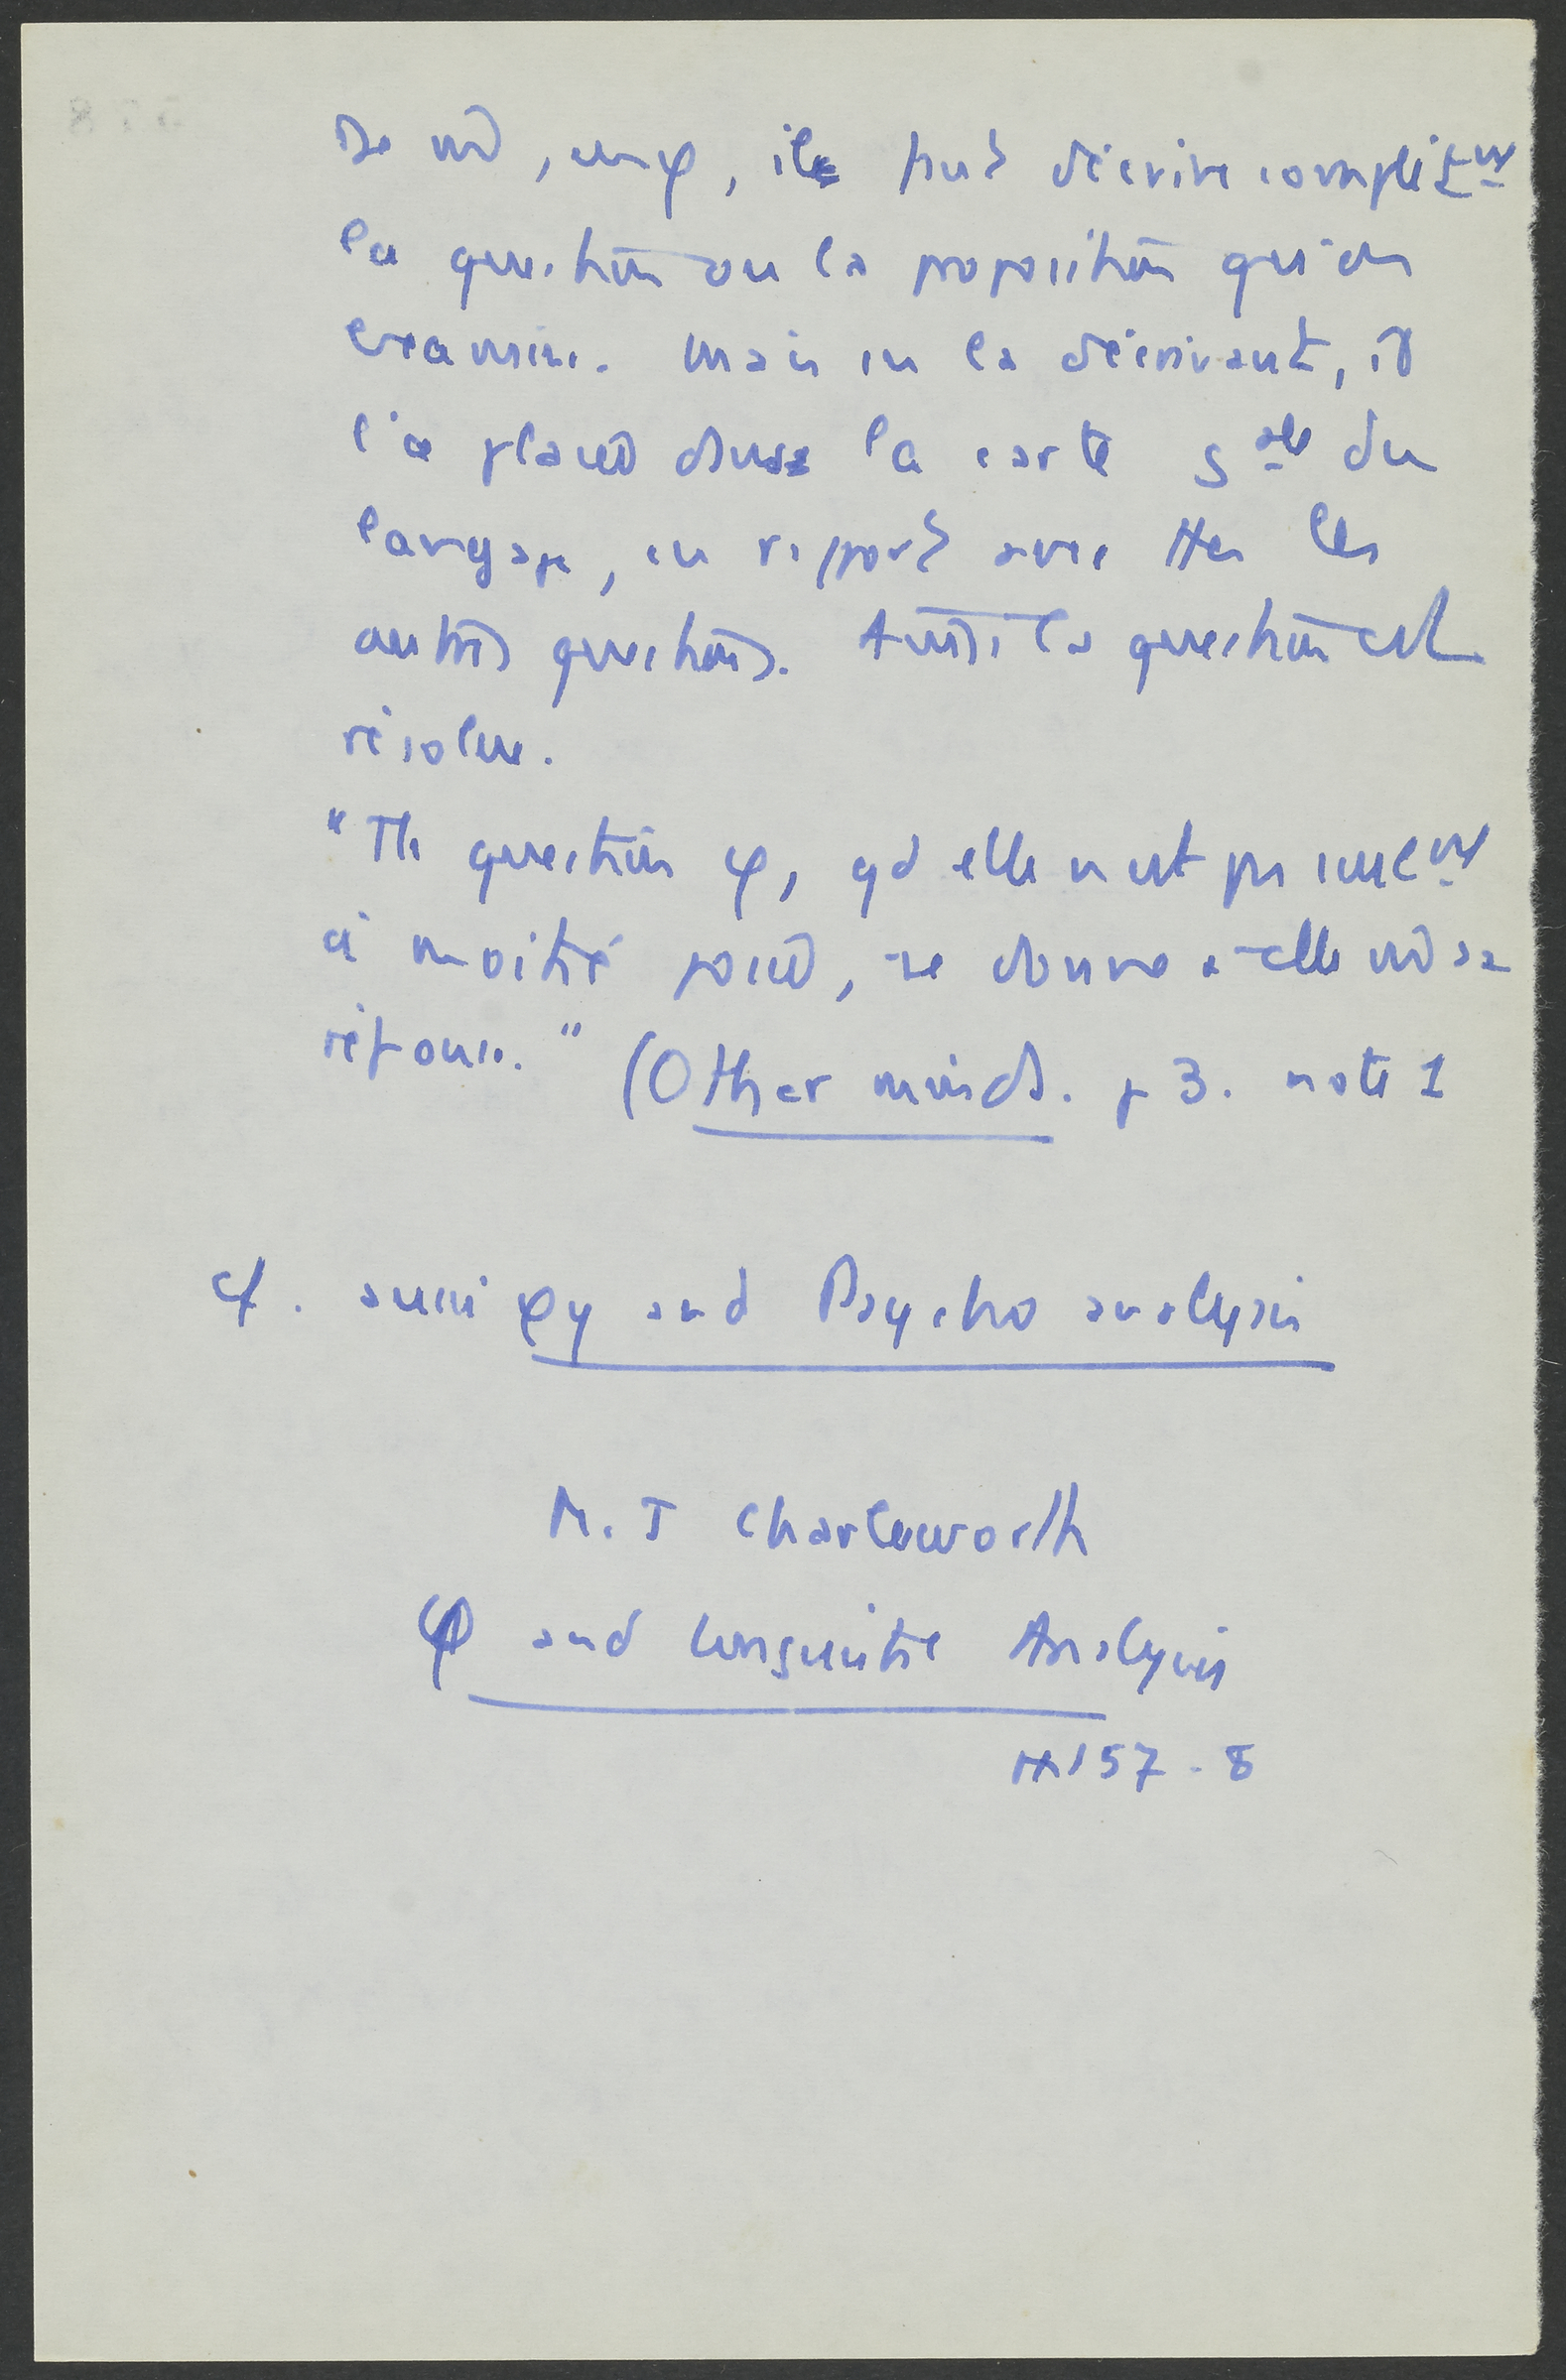 De md, en φ, il faut décrire complètᵐᵗ
la question ou la proposition qu'on
examine. Mais en la décrivant, on
l'a placée dans la carte gale du
langage, en rapport avec ttes les
autres questions. Aussi la question est
résolue.
"Tte question φ, qd elle n'est pas seulᵐᵗ
à moitié posée, se donne à elle md sa
réponse." (Other minds. p 3. note 1
cf. aussi φy and Psychoanalysis
M. J Charlesworth
φ and Linguistic Analysis
pp 157-8